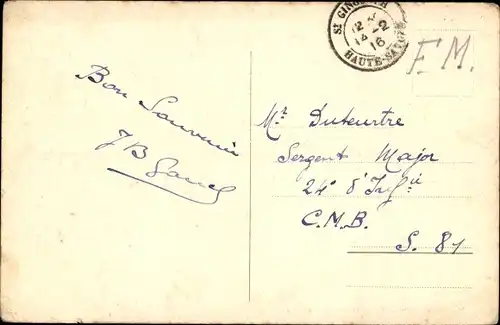 St GINGOLPH
12
14-2
16
HAUTE-SAVOIE
F.M.
Bon Souvenir
JB
Mr. Duteurtre
Sergent Major
24e d'Infie
C.M.B.
S. 81